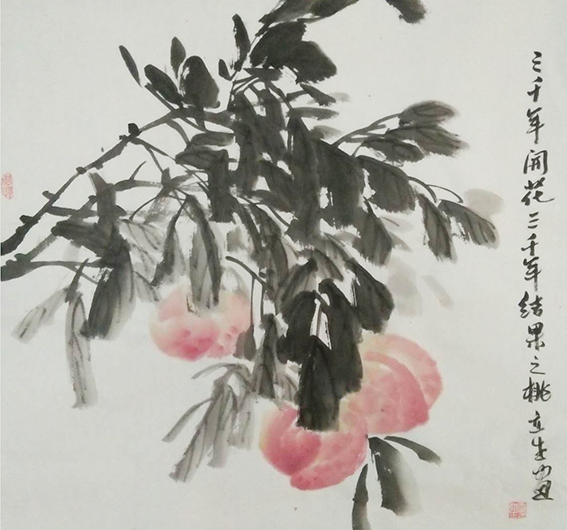 三千年開花三千年结果之桃立生畫